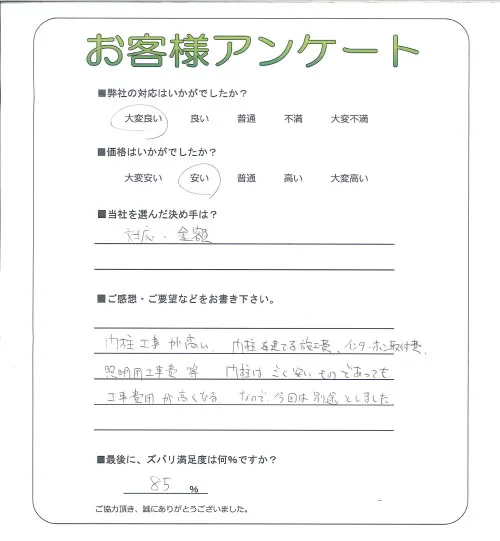 お客様アンケート
■弊社の対応はいかがでしたか？
大変良い 良い 普通 不満 大変不満
■価格はいかがでしたか？
大変安い 安い 普通 高い 大変高い
■当社を選んだ決め手は？
対応・金額
■ご感想・ご要望などをお書き下さい。
門柱工事が高い、門柱を建てる施工費、インターホン取付費、
照明用工事費等 門柱はごく安いものであっても
工事費用が高くなる なので、今回は別途としました
■最後に、ズバリ満足度は何%ですか？
85 %
ご協力頂き、誠にありがとうございました。